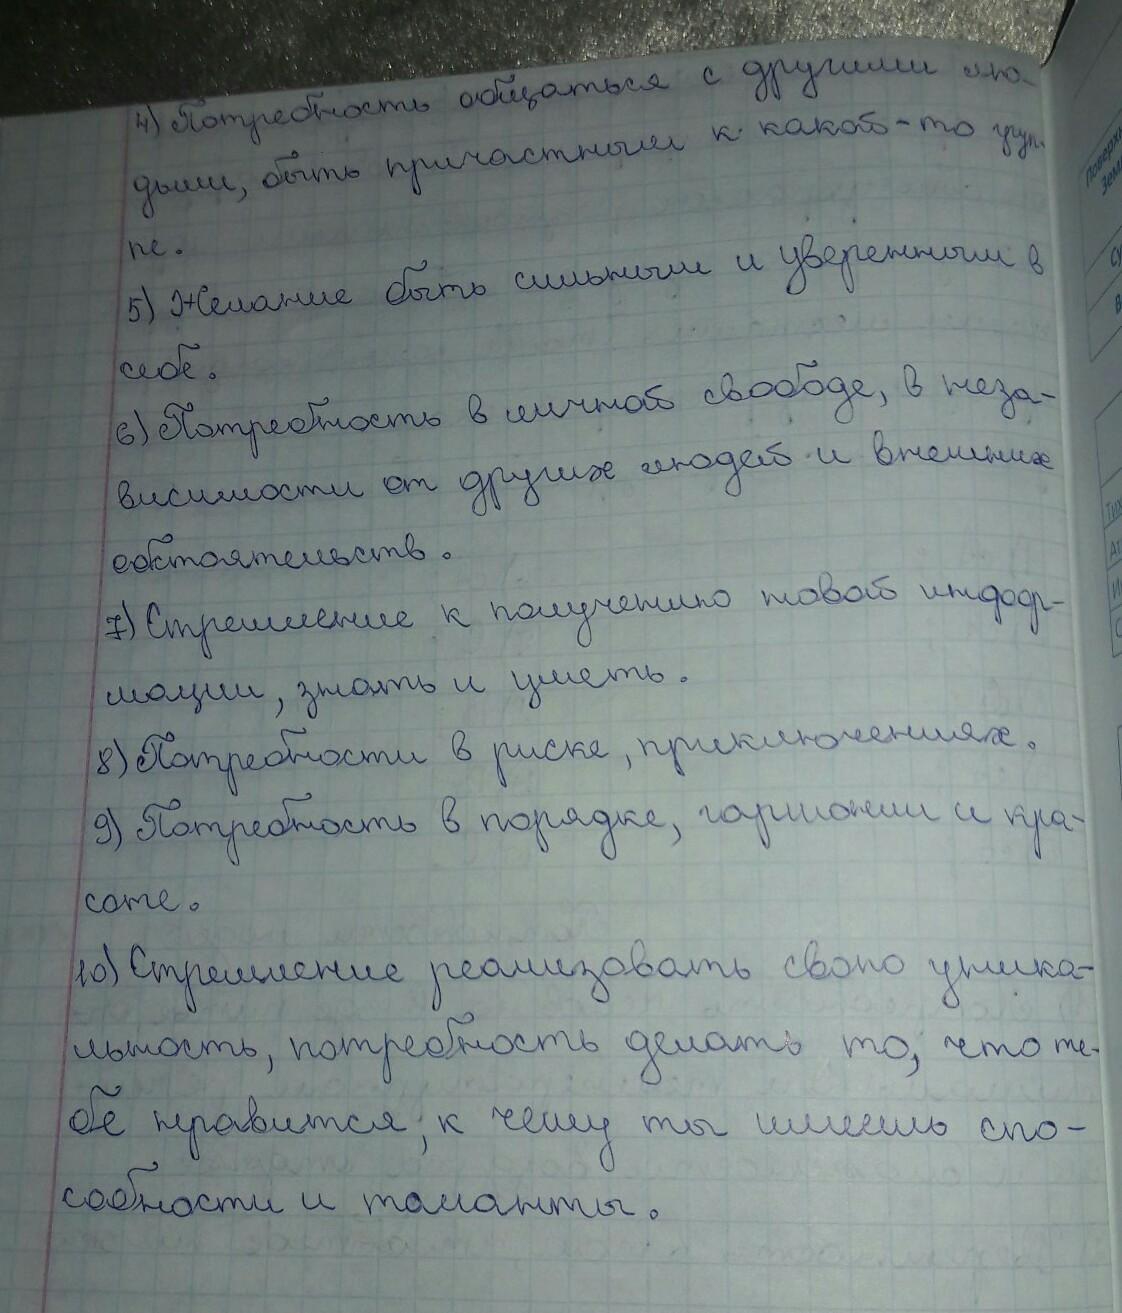 4) Потребность общаться с другими лю-
дьми, быть причастным к какой-то груп-
пе.
5) Желание быть сильным и уверенным в
себе.
6) Потребность в личной свободе, в неза-
висимости от других людей и внешних
обстоятельств.
7) Стремление к получению новой информ-
мации, знать и уметь.
8) Потребности в риске, приключениях.
9) Потребность в порядке, гармонии и кра-
соте.
10) Стремление реализовать свою уника-
льность, потребность делать то, что те-
бе нравится, к чему ты имеешь спо-
собности и таланты.
Поверхн
Земл